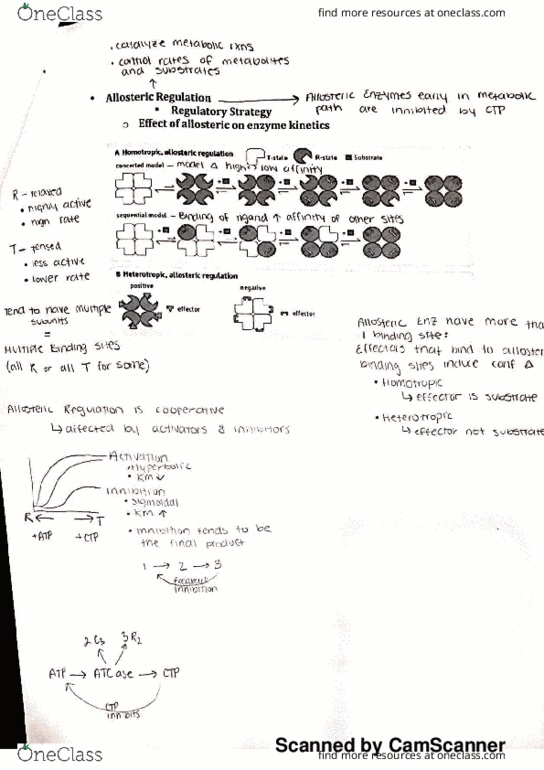 OneClass
find more resources at oneclass.com
• catalyze metabolic rxns
• control rates of metabolites
and substrates
• Allosteric Regulation → Allosteric Enzymes early in metabolic
path are inhibited by CTP
▪ Regulatory Strategy
○ Effect of allosteric on enzyme kinetics
A Homotropic, allosteric regulation
T-state R-state Substrate
concerted model – model Δ high/low affinity
R – relaxed
• highly active
• high rate
sequential model – Binding of ligand ↑ affinity of other sites
T – tensed
• less active
• lower rate
B Heterotropic, allosteric regulation
positive
negative
effector
effector
Tend to have multiple
subunits
=
Multiple Binding sites
(all R or all T for some)
Allosteric Enz have more tha
1 binding site:
Effectors that bind to alloster
binding sites include conf Δ
• Homotropic
↳ effector is substrate
• Heterotropic
↳ effector not substrate
Allosteric Reguation is cooperative
↳ affected by activators & inhibitors
Activation
• Hyperbolic
• KM ↓
Inhibition
• sigmoidal
• KM ↑
R ← → T
+ATP +CTP
• inhibition tends to be
the final product
1 → 2 → 3
feedback
inhibition
2C3 3R2
ATP → ATCase → CTP
CTP
inhibits
Scanned by CamScanner
OneClass
find more resources at oneclass.com